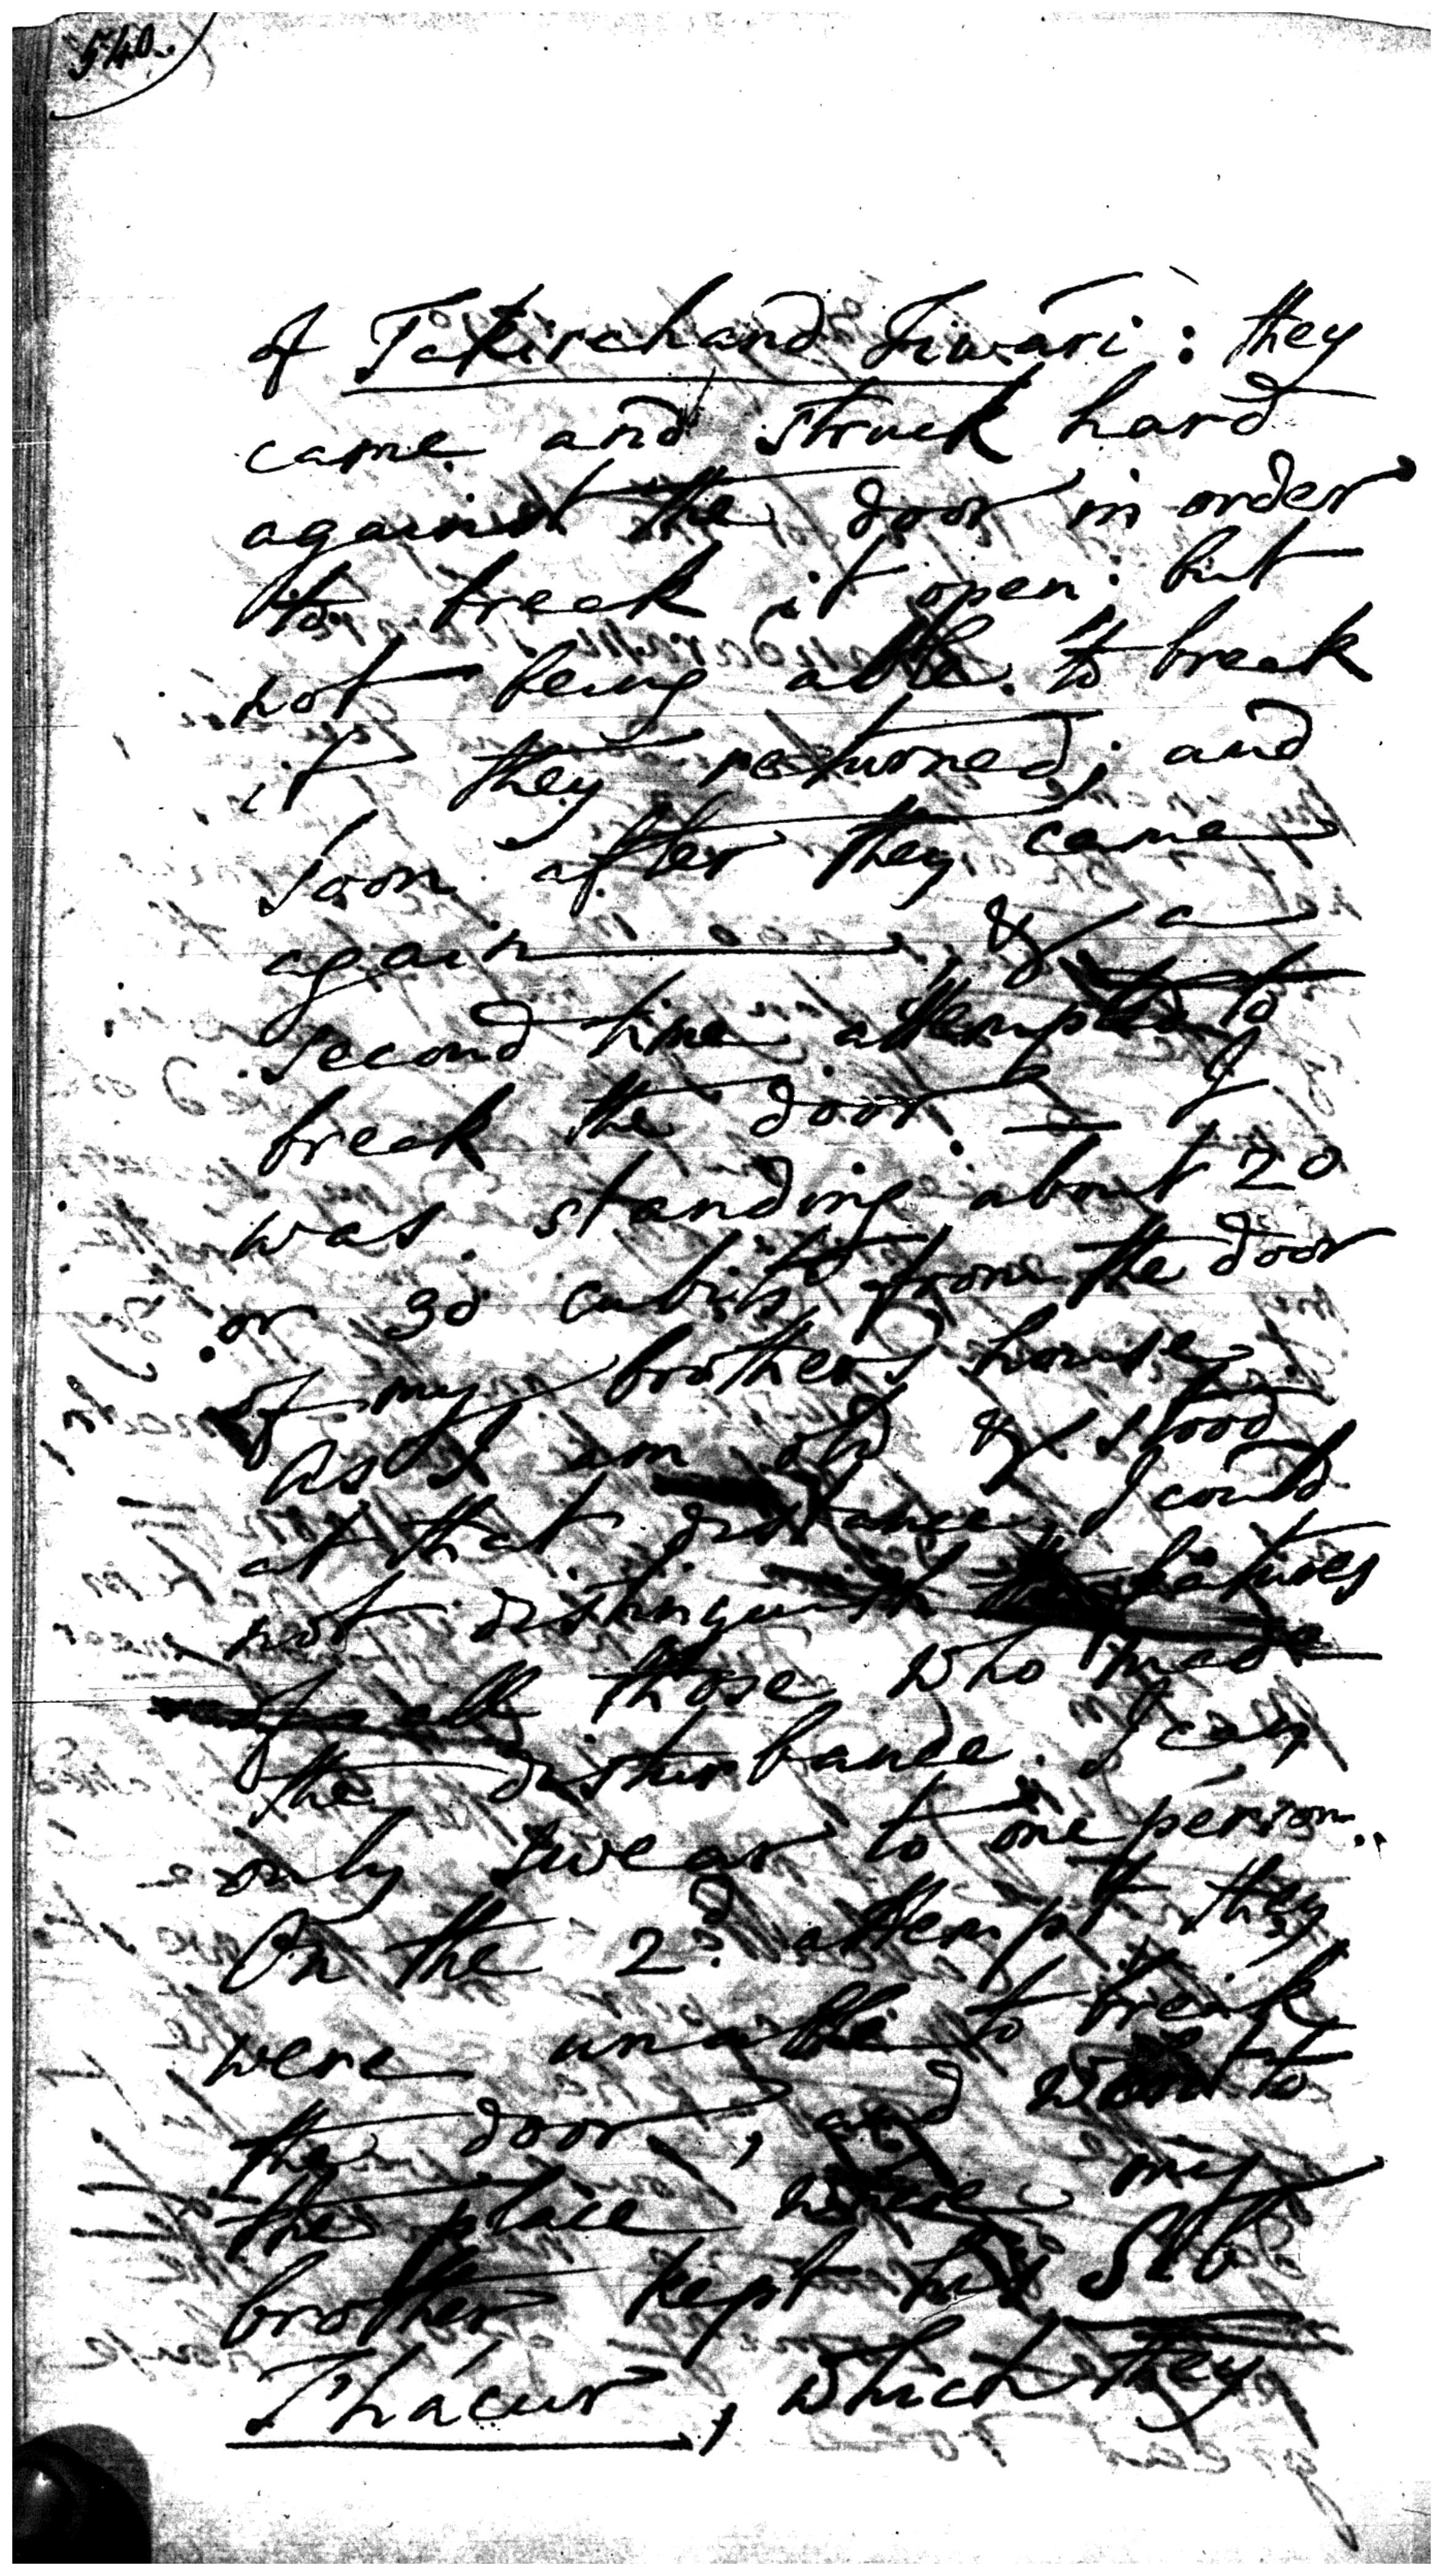 540.
of Fakirchand Tiwari: they
came and struck hard
against the door in order
to break it open: but
not being able to break
it they returned; and
soon after they came
again, & a
second time attempted to
break the door. — I
was standing about 20
or 30 cubits from the door
of my brother's house,
As I am old & stood
at that distance, I could
not distinguish the features
of all those who made
the disturbance. I can
only swear to one person..
On the 2d attempt they
were unable to break
the door, and went to
the place where my
brother kept his Sib
Thácur, which they